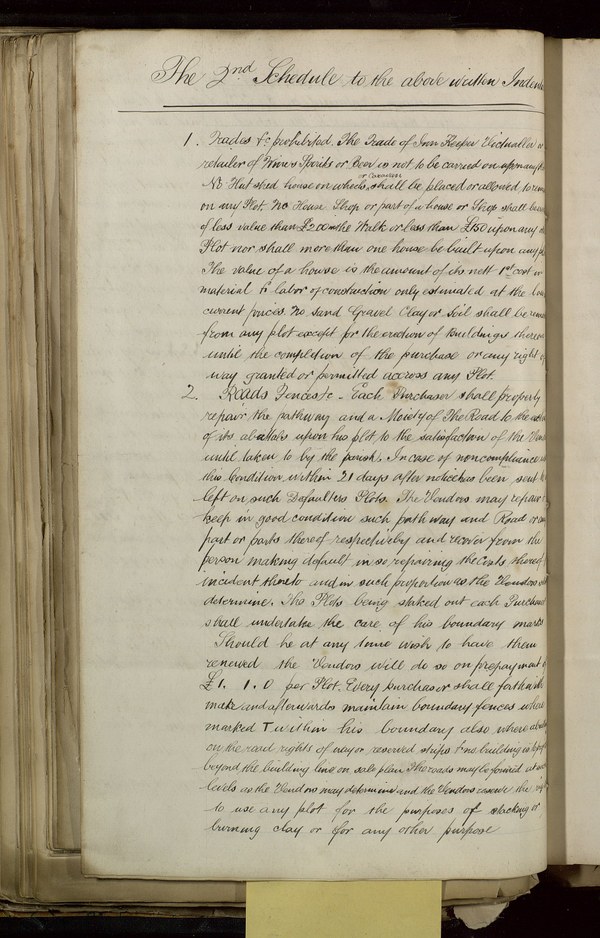 The 2nd Schedule to the above written Inden
1. Trades &c prohibited. The Trade of Inn Keeper Victualler or
retailer of Wines Spirits or Beer is not to be carried on upon any
or Caravan
No Hut shed house on wheels shall be placed or allowed to
on any Plot. No House Shop or part of a house or Shop shall
of less value than £200 the Walk or less than £150 upon any
Plot nor shall more than one house be built upon any
The value of a house is the amount of its nett 1st cost in
material & labor of construction only estimated at the
current prices. No Sand Gravel Clay or Soil shall be
from any plot except for the erection of Buildings thereon
until the completion of the purchase or any right of
way granted or permitted accross any Plot.
2. Roads Fences &c - Each Purchaser shall properly
repair the pathway and a Moiety of The Road to the
of its abuttals upon his plot to the satisfaction of the Vend
until taken to by the parish. In case of noncompliance
this Condition within 21 days after notice has been sent
left on such Defaulters Plots. The Vendors may repair
keep in good condition such pathway and Road or
part or parts thereof respectively and recover from the
person making default in so repairing the costs thereof
incident thereto and in such proportion as the Vendors
determine. The Plots being staked out each Purchaser
shall undertake the care of his boundary marks
Should he at any time wish to have them
renewed the Vendors will do so on prepayment of
£1. 1. 0 per Plot. Every purchaser shall forthwith
make and afterwards maintain boundary fences where
marked T within his boundary also where
on the road rights of way or reserved strips & no building is to
beyond the building line on sale plan. The roads may be formed at
levels as the Vendors may determine and the Vendors reserve the
to use any plot for the purposes of stacking or
burning clay or for any other purpose